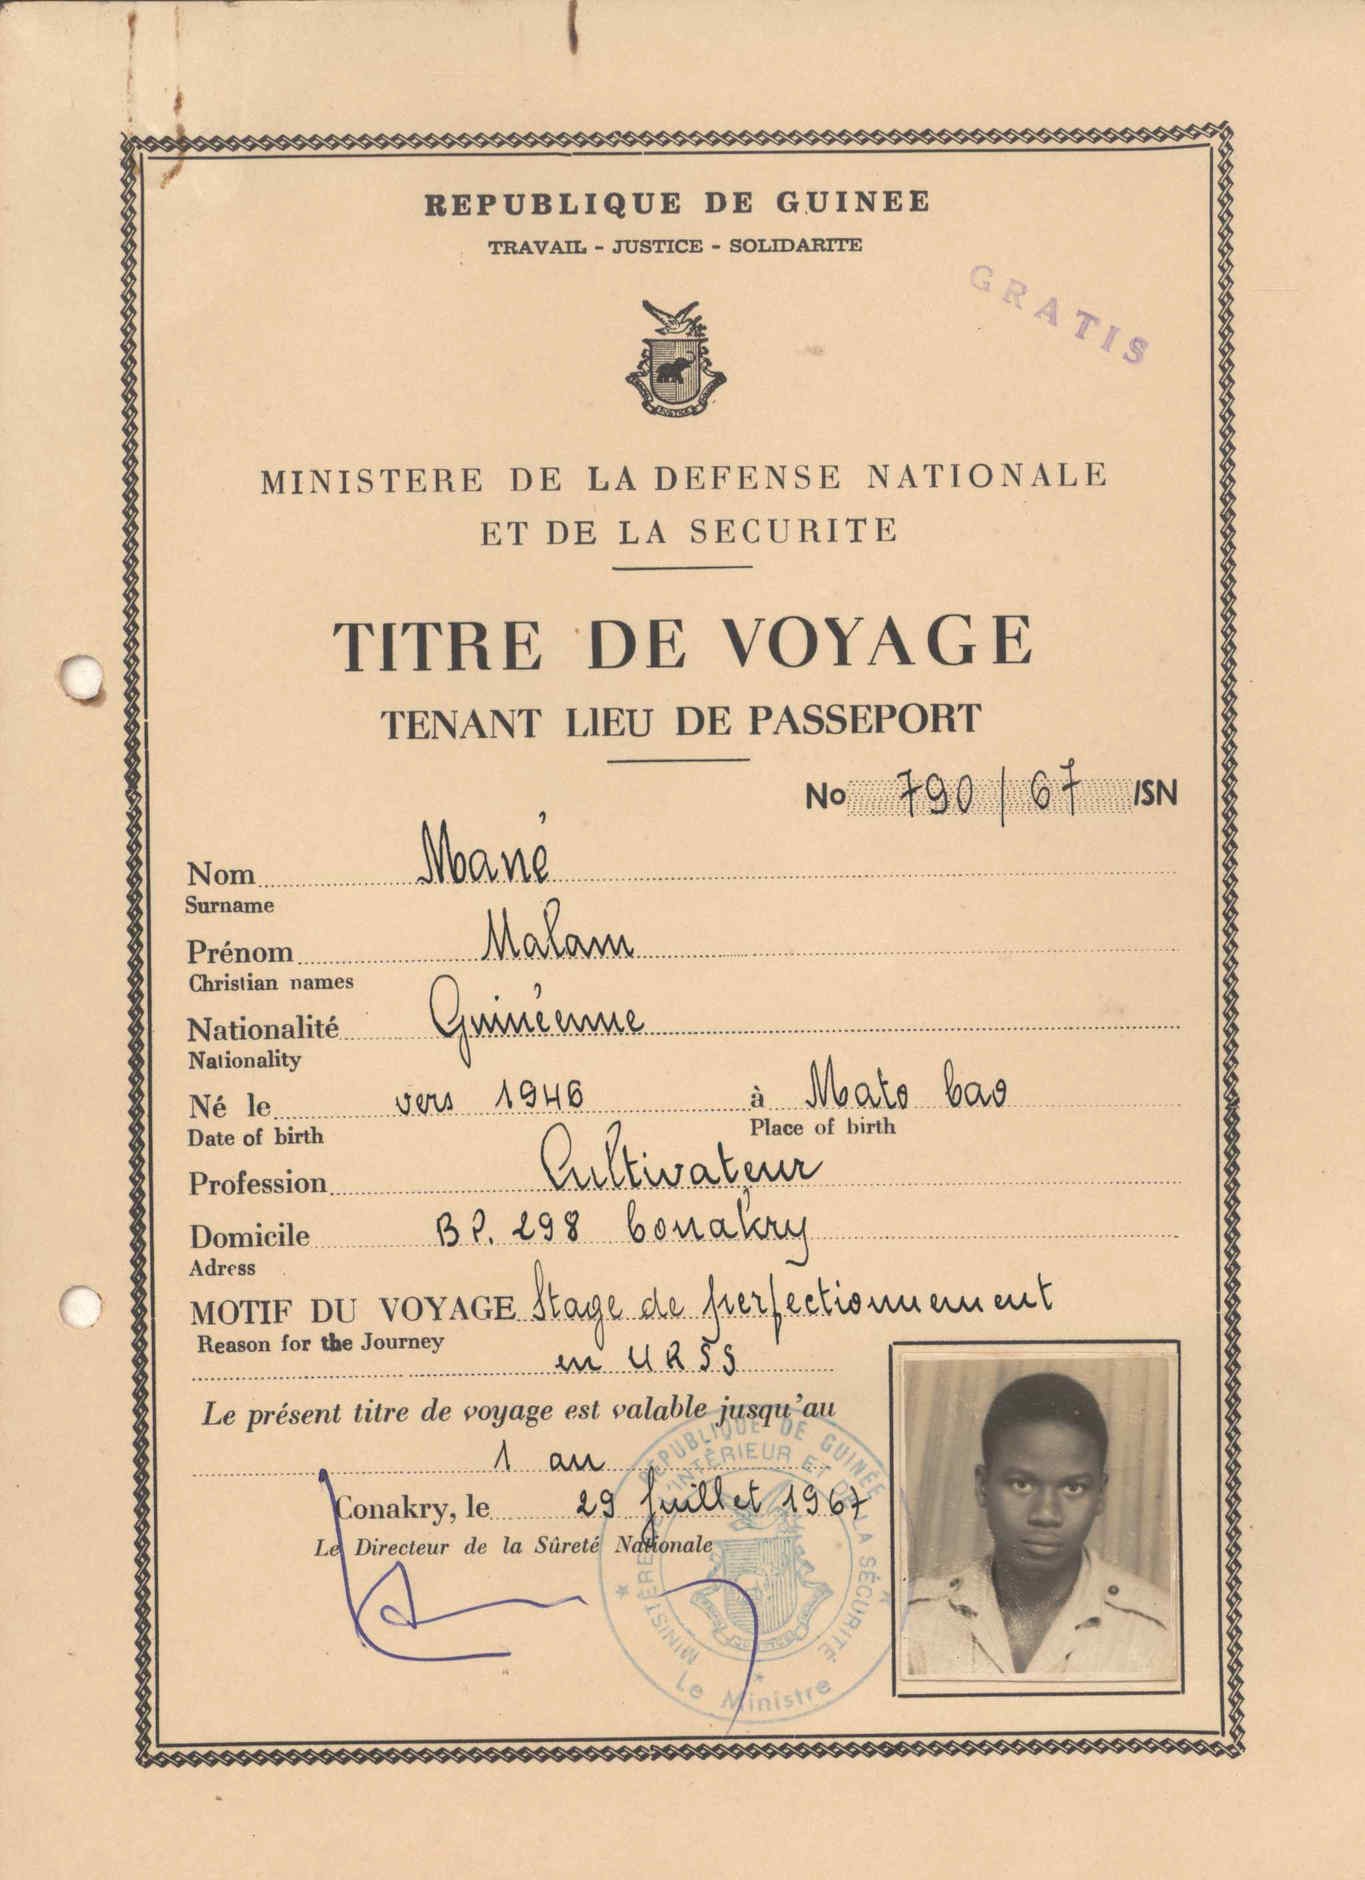 REPUBLIQUE DE GUINEE
TRAVAIL - JUSTICE - SOLIDARITE
GRATIS
MINISTERE DE LA DEFENSE NATIONALE
ET DE LA SECURITE
TITRE DE VOYAGE
TENANT LIEU DE PASSEPORT
No 790/67 /SN
Nom Mané
Surname
Prénom Malam
Christian names
Nationalité Guinéenne
Nationality
Né le vers 1946 à Mato Cao
Date of birth Place of birth
Profession Cultivateur
Domicile BP. 298 Conakry
Adress
MOTIF DU VOYAGE Stage de perfectionnement
Reason for the Journey
en URSS
Le présent titre de voyage est valable jusqu'au
1 an
Conakry, le 29 Juillet 1967
Le Directeur de la Sûreté Nationale
REPUBLIQUE DE GUINÉE
MINISTÈRE INTÉRIEUR ET LA SÉCURITÉ
Le Ministre